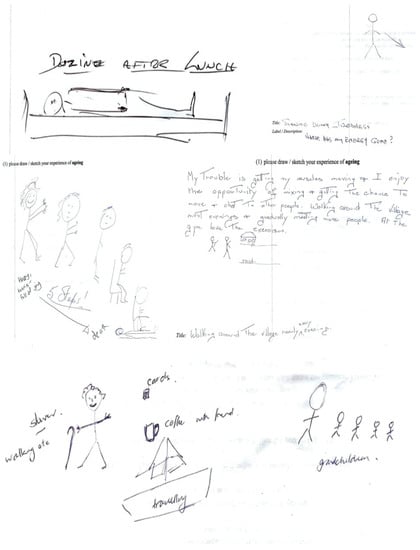 DOZING AFTER LUNCH
Title:
Label / Description
WHERE HAS MY ENERGY GONE?
(1) please draw / sketch your experience of ageing
(1) please draw / sketch your experience of ageing
My Trouble is getting my muscles moving & I enjoy
the opportunity of mixing & getting the chance to
move & chat to other people. Walking around the village
most evenings & gradually meeting more people. At the
gym love the exercises.
5 Steps!
death
Title: Walking around the village nearly every evening
cards.
slower.
coffee with friend.
walking
travelling
grandchildren.